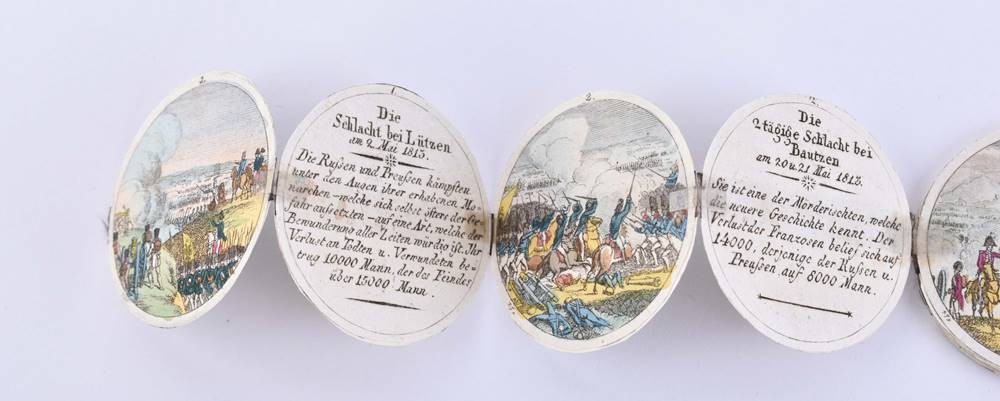 2.
1
Die
Schlacht bei Lützen
am 2. Mai 1813.
Die Rußen und Preußen kämpften
unter den Augen ihrer erhabenen Mo-
narchen – welche sich selbst öfters der Ge-
fahr aussetzten – auf eine Art, welche der
Bewunderung aller Zeiten würdig ist. Ihr
Verlust an Todten u. Verwundeten be-
trug 10000 Mann, der des Feindes
über 15000 Mann.
2.
2.
Die
2 tägige Schlacht bei
Bautzen
am 20 u. 21 Mai 1813.
Sie ist eine der Mörderischten, welche
die neuere Geschichte kennt. Der
Verlust der Franzosen belief sich auf
14000, derjenige der Rußen u.
Preußen auf 8000 Mann.